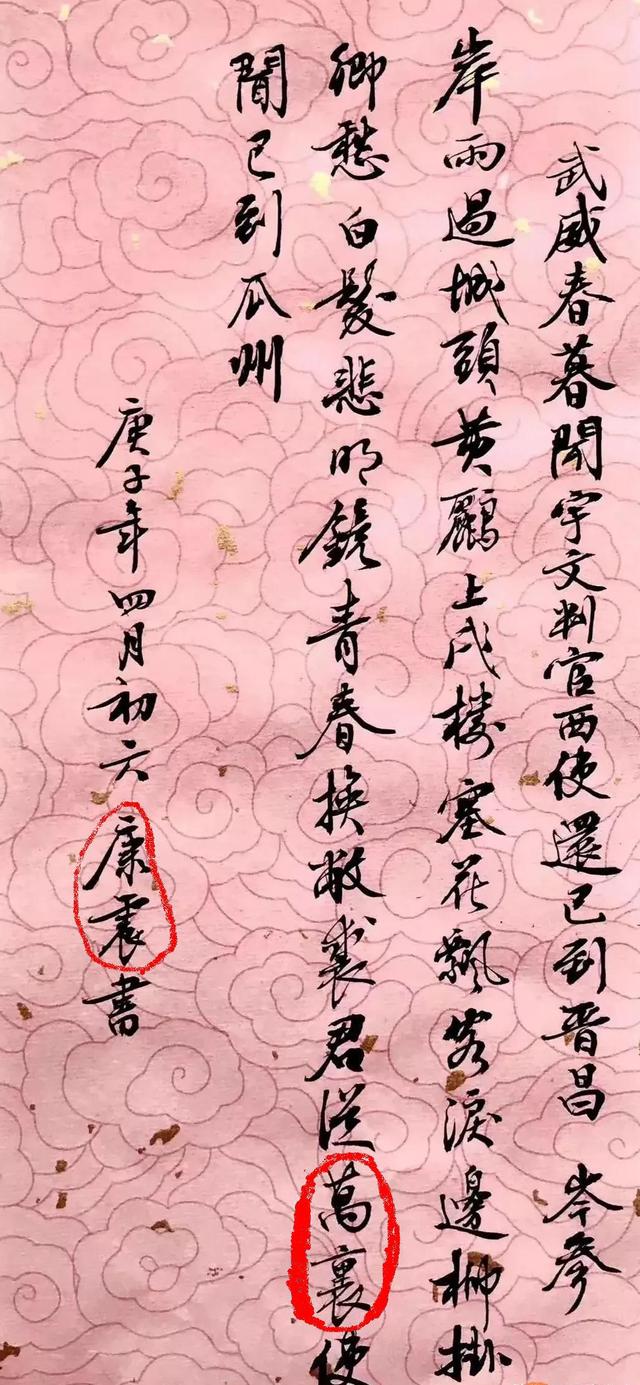 武威春暮聞宇文判官西使還已到晋昌 岑參
岸雨過城頭黄鸝上戍樓塞花飄客淚邊柳掛
鄉愁白髮悲明鏡青春換敝裘君從萬裏使
聞已到瓜州
庚子年四月初六康震書